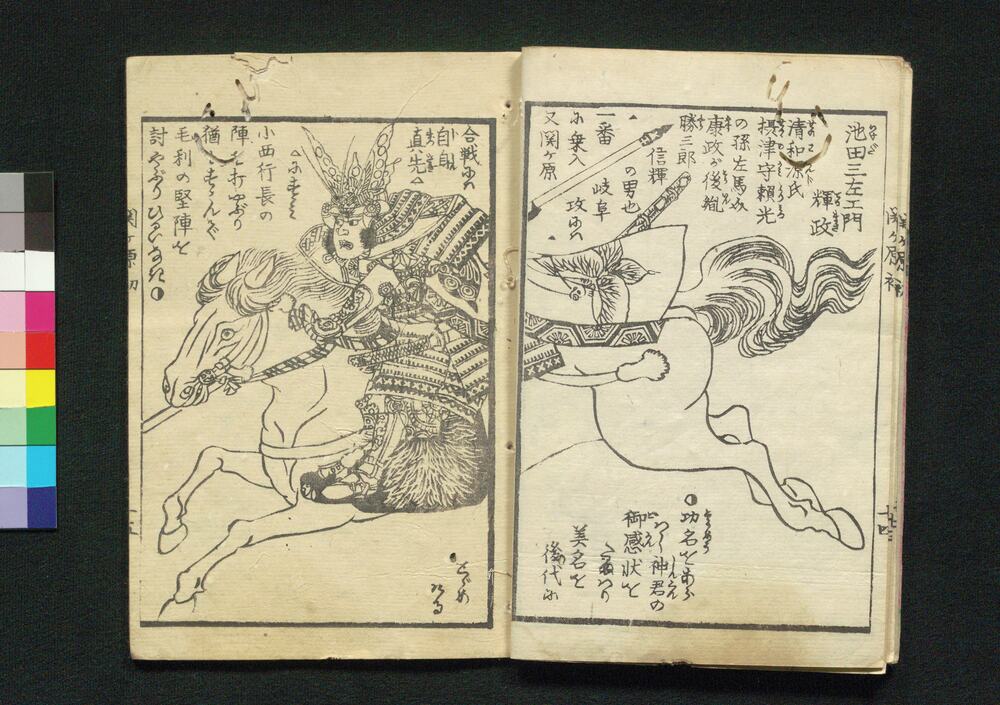 池田三左エ門
輝政
清和源氏
摂津守頼光
の孫左馬允
康政が後胤
勝三郎
信輝
の男也
岐阜
攻に
一番
に乗入
又関ヶ原
合戦に
自身
直先△
△にすゝミ
小西行長の
陣を打やぶり
猶もすゝんで
毛利の堅陣を
討やぶりひるいなき
功名を
神君の
御感状を
たまハり
美名を
後代に
とゞめ
関ヶ原